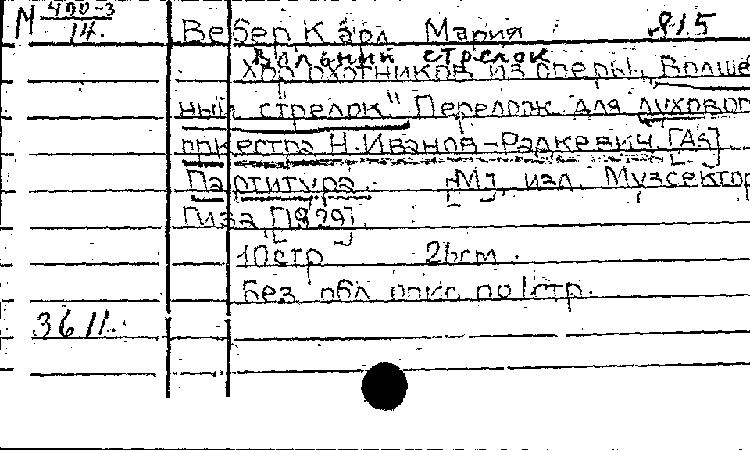 М 400-3/14. Вебер Карл Мария 815
Вольный стрелок
Хор охотников из оперы „Волше
ный стрелок" Перелож для духовог
оркестра Н. Иванов-Радкевич [As]
Партитура. [М], изд. Музсектор
Гиза [1929].
10стр 26cm.
Без обл опис по 1 стр.
3611.